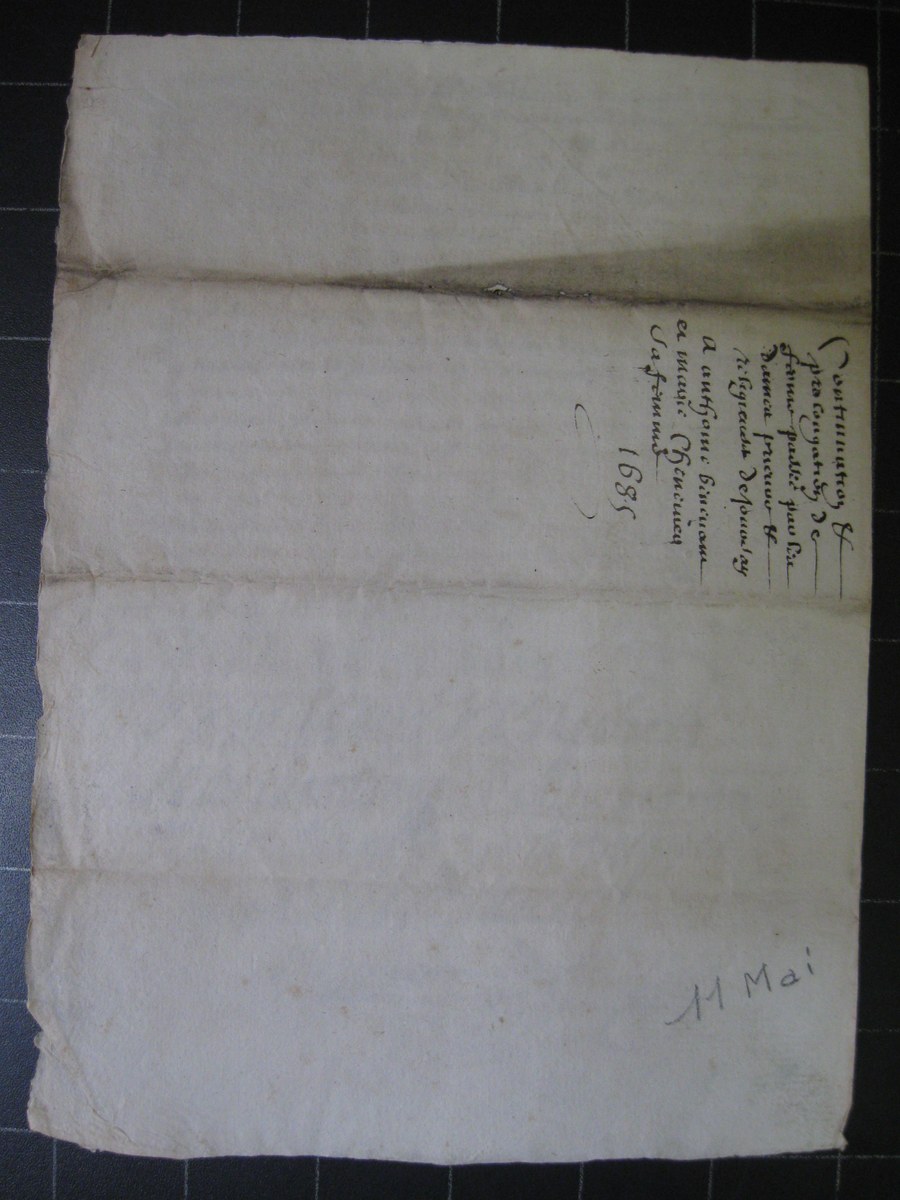 Continuation &
prolongation de
ferme passé par les
dames prieure &
religieuses de
a anthoine
et marie
sa femme
1685
11 Mai